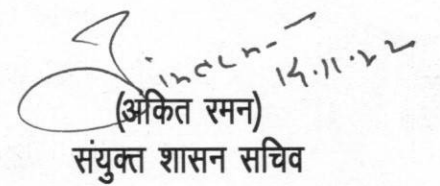 14.11.22
(अंकित रमन)
संयुक्त शासन सचिव